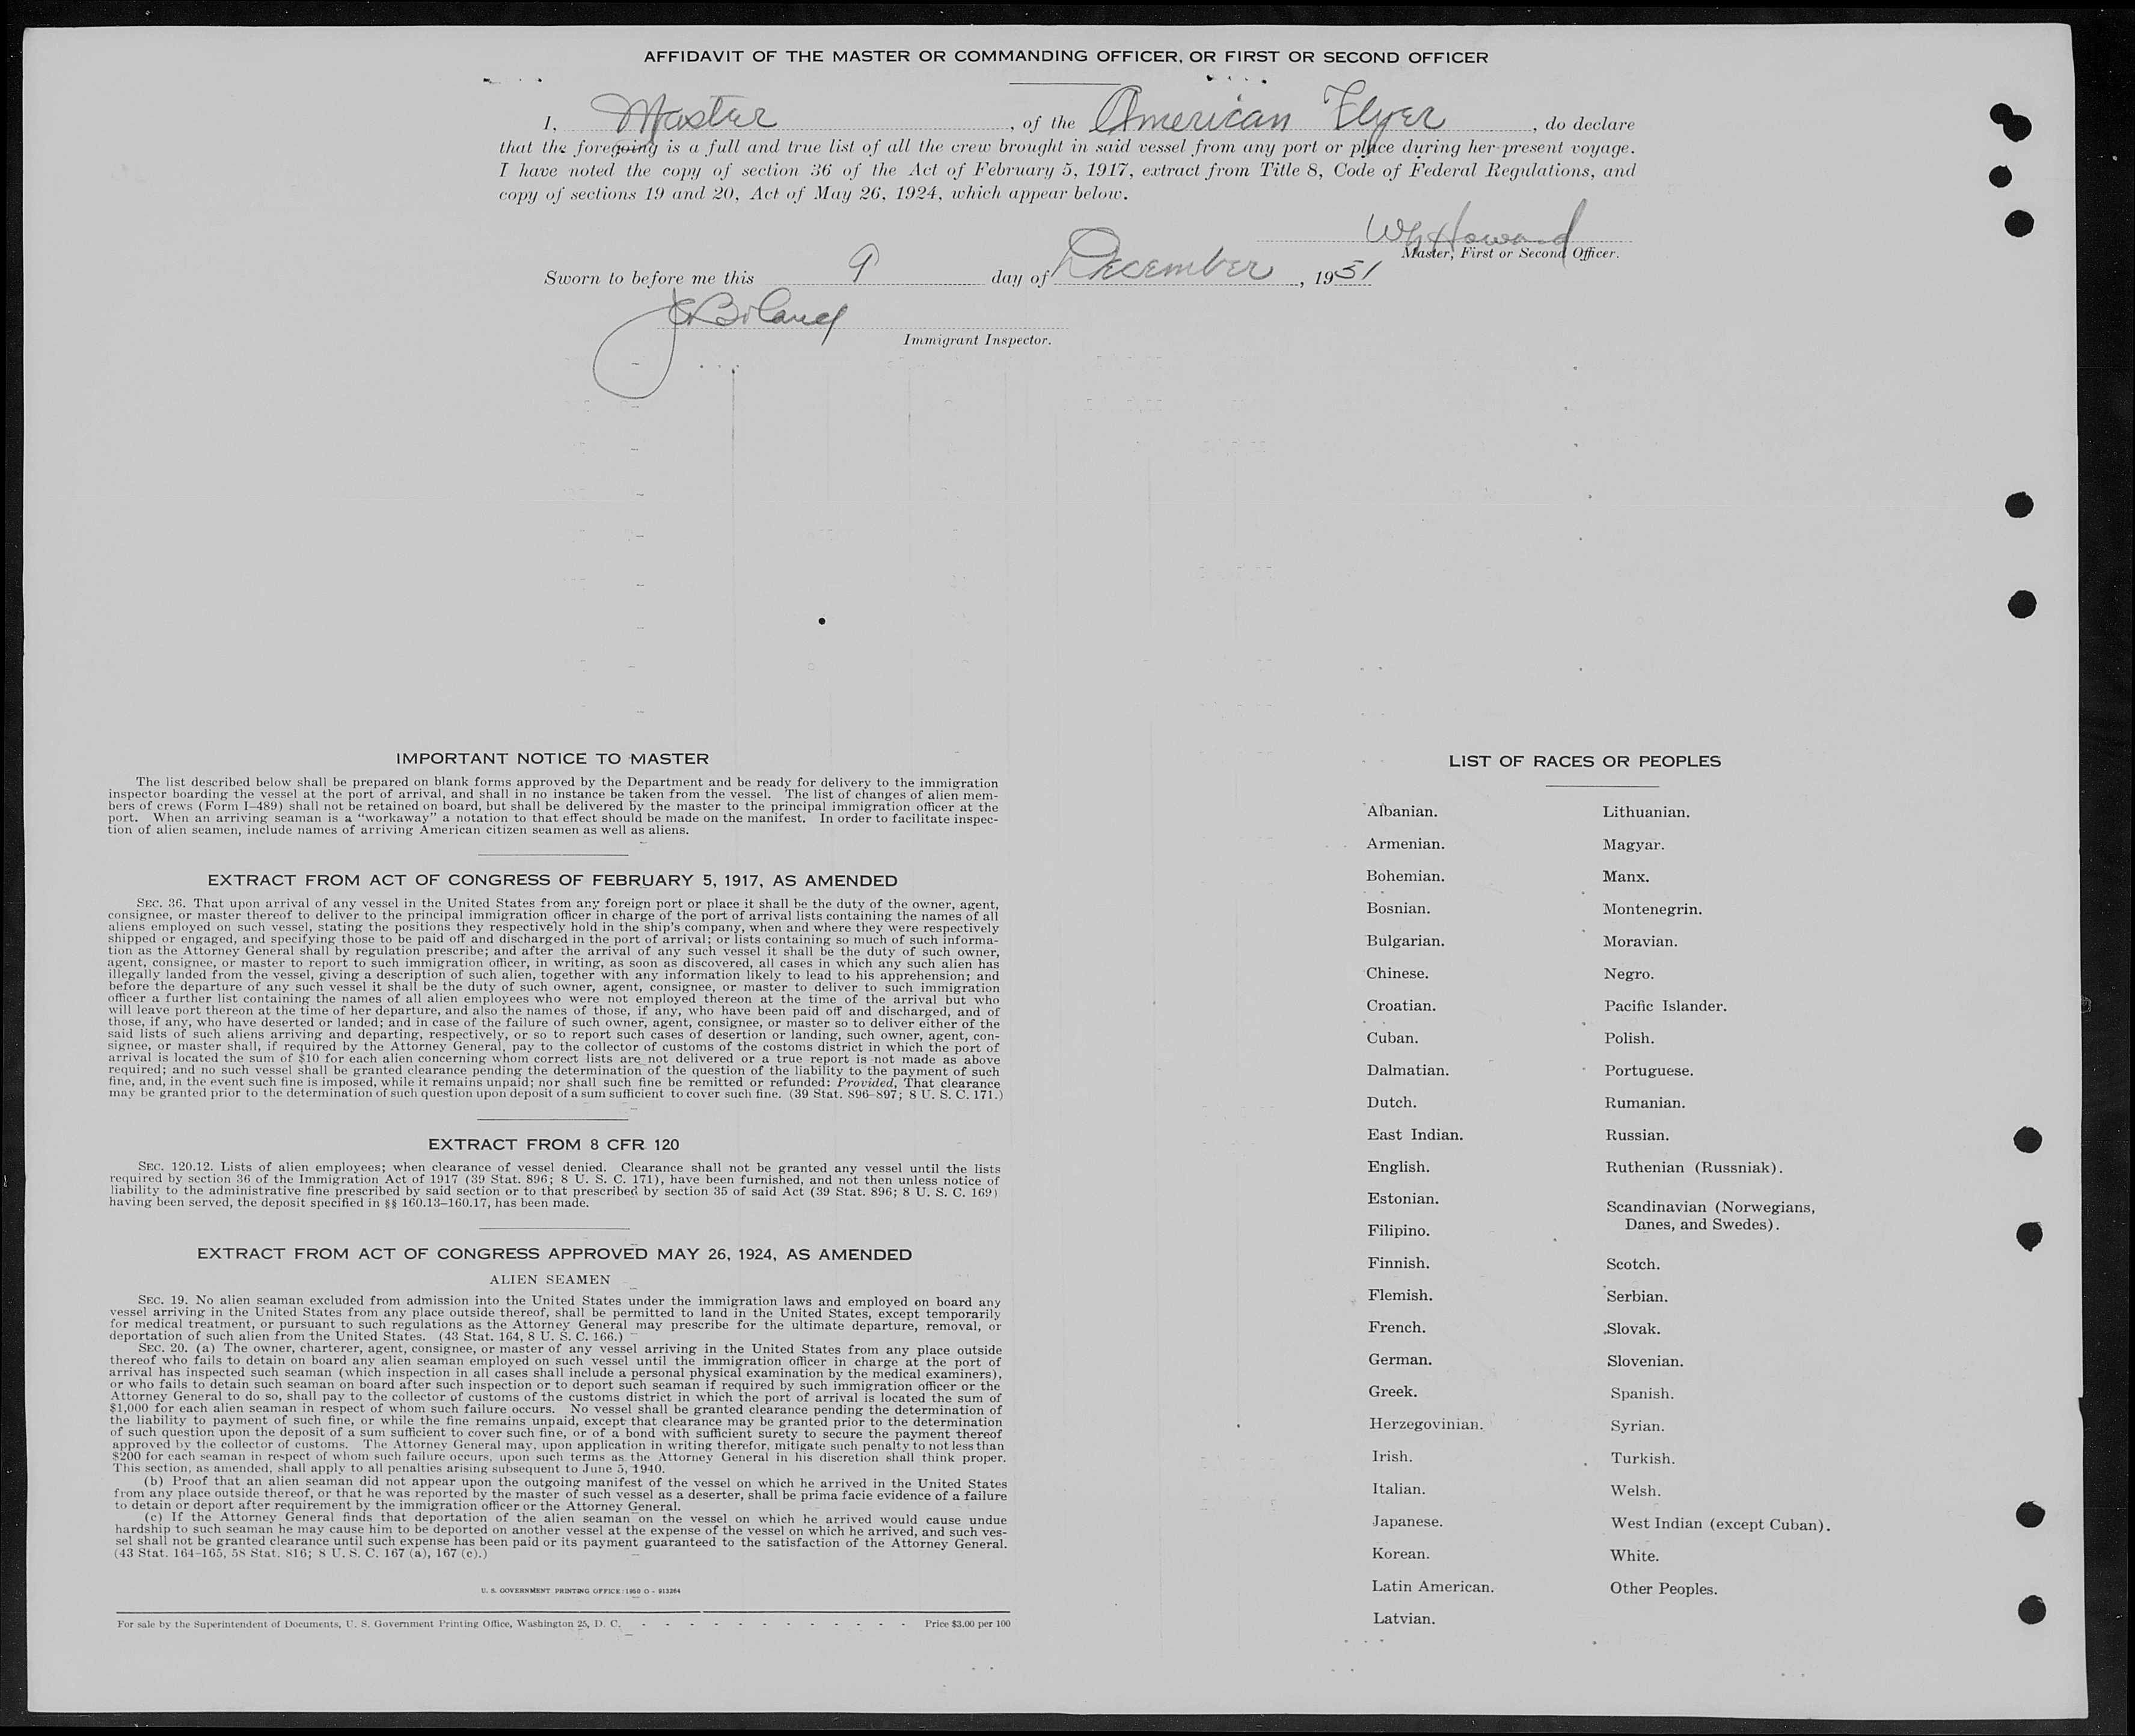 AFFIDAVIT OF THE MASTER OR COMMANDING OFFICER, OR FIRST OR SECOND OFFICER
I, Master, of the American Flyer, do declare
that the foregoing is a full and true list of all the crew brought in said vessel from any port or place during her present voyage.
I have noted the copy of section 36 of the Act of February 5, 1917, extract from Title 8, Code of Federal Regulations, and
copy of sections 19 and 20, Act of May 26, 1924, which appear below.
Howard
Master, First or Second Officer.
Sworn to before me this 9 day of December, 1951
Immigrant Inspector.
IMPORTANT NOTICE TO MASTER
The list described below shall be prepared on blank forms approved by the Department and be ready for delivery to the immigration
inspector boarding the vessel at the port of arrival, and shall in no instance be taken from the vessel. The list of changes of alien mem-
bers of crews (Form I–489) shall not be retained on board, but shall be delivered by the master to the principal immigration officer at the
port. When an arriving seaman is a "workaway" a notation to that effect should be made on the manifest. In order to facilitate inspec-
tion of alien seamen, include names of arriving American citizen seamen as well as aliens.
EXTRACT FROM ACT OF CONGRESS OF FEBRUARY 5, 1917, AS AMENDED
SEC. 36. That upon arrival of any vessel in the United States from any foreign port or place it shall be the duty of the owner, agent,
consignee, or master thereof to deliver to the principal immigration officer in charge of the port of arrival lists containing the names of all
aliens employed on such vessel, stating the positions they respectively hold in the ship's company, when and where they were respectively
shipped or engaged, and specifying those to be paid off and discharged in the port of arrival; or lists containing so much of such informa-
tion as the Attorney General shall by regulation prescribe; and after the arrival of any such vessel it shall be the duty of such owner,
agent, consignee, or master to report to such immigration officer, in writing, as soon as discovered, all cases in which any such alien has
illegally landed from the vessel, giving a description of such alien, together with any information likely to lead to his apprehension; and
before the departure of any such vessel it shall be the duty of such owner, agent, consignee, or master to deliver to such immigration
officer a further list containing the names of all alien employees who were not employed thereon at the time of the arrival but who
will leave port thereon at the time of her departure, and also the names of those, if any, who have been paid off and discharged, and of
those, if any, who have deserted or landed; and in case of the failure of such owner, agent, consignee, or master so to deliver either of the
said lists of such aliens arriving and departing, respectively, or so to report such cases of desertion or landing, such owner, agent, con-
signee, or master shall, if required by the Attorney General, pay to the collector of customs of the costoms district in which the port of
arrival is located the sum of $10 for each alien concerning whom correct lists are not delivered or a true report is not made as above
required; and no such vessel shall be granted clearance pending the determination of the question of the liability to the payment of such
fine, and, in the event such fine is imposed, while it remains unpaid; nor shall such fine be remitted or refunded: Provided, That clearance
may be granted prior to the determination of such question upon deposit of a sum sufficient to cover such fine. (39 Stat. 896–897; 8 U. S. C. 171.)
EXTRACT FROM 8 CFR 120
SEC. 120.12. Lists of alien employees; when clearance of vessel denied. Clearance shall not be granted any vessel until the lists
required by section 36 of the Immigration Act of 1917 (39 Stat. 896; 8 U. S. C. 171), have been furnished, and not then unless notice of
liability to the administrative fine prescribed by said section or to that prescribed by section 35 of said Act (39 Stat. 896; 8 U. S. C. 169)
having been served, the deposit specified in §§ 160.13–160.17, has been made.
EXTRACT FROM ACT OF CONGRESS APPROVED MAY 26, 1924, AS AMENDED
ALIEN SEAMEN
SEC. 19. No alien seaman excluded from admission into the United States under the immigration laws and employed on board any
vessel arriving in the United States from any place outside thereof, shall be permitted to land in the United States, except temporarily
for medical treatment, or pursuant to such regulations as the Attorney General may prescribe for the ultimate departure, removal, or
deportation of such alien from the United States. (43 Stat. 164, 8 U. S. C. 166.)
SEC. 20. (a) The owner, charterer, agent, consignee, or master of any vessel arriving in the United States from any place outside
thereof who fails to detain on board any alien seaman employed on such vessel until the immigration officer in charge at the port of
arrival has inspected such seaman (which inspection in all cases shall include a personal physical examination by the medical examiners),
or who fails to detain such seaman on board after such inspection or to deport such seaman if required by such immigration officer or the
Attorney General to do so, shall pay to the collector of customs of the customs district in which the port of arrival is located the sum of
$1,000 for each alien seaman in respect of whom such failure occurs. No vessel shall be granted clearance pending the determination of
the liability to payment of such fine, or while the fine remains unpaid, except that clearance may be granted prior to the determination
of such question upon the deposit of a sum sufficient to cover such fine, or of a bond with sufficient surety to secure the payment thereof
approved by the collector of customs. The Attorney General may, upon application in writing therefor, mitigate such penalty to not less than
$200 for each seaman in respect of whom such failure occurs, upon such terms as the Attorney General in his discretion shall think proper.
This section, as amended, shall apply to all penalties arising subsequent to June 5, 1940.
(b) Proof that an alien seaman did not appear upon the outgoing manifest of the vessel on which he arrived in the United States
from any place outside thereof, or that he was reported by the master of such vessel as a deserter, shall be prima facie evidence of a failure
to detain or deport after requirement by the immigration officer or the Attorney General.
(c) If the Attorney General finds that deportation of the alien seaman on the vessel on which he arrived would cause undue
hardship to such seaman he may cause him to be deported on another vessel at the expense of the vessel on which he arrived, and such ves-
sel shall not be granted clearance until such expense has been paid or its payment guaranteed to the satisfaction of the Attorney General.
(43 Stat. 164–165, 58 Stat. 816; 8 U. S. C. 167 (a), 167 (c).)
U. S. GOVERNMENT PRINTING OFFICE : 1950 O - 913264
For sale by the Superintendent of Documents, U. S. Government Printing Office, Washington 25, D. C. - - - - - - - - - - - - Price $3.00 per 100
LIST OF RACES OR PEOPLES
Albanian.
Armenian.
Bohemian.
Bosnian.
Bulgarian.
Chinese.
Croatian.
Cuban.
Dalmatian.
Dutch.
East Indian.
English.
Estonian.
Filipino.
Finnish.
Flemish.
French.
German.
Greek.
Herzegovinian.
Irish.
Italian.
Japanese.
Korean.
Latin American.
Latvian.
Lithuanian.
Magyar.
Manx.
Montenegrin.
Moravian.
Negro.
Pacific Islander.
Polish.
Portuguese.
Rumanian.
Russian.
Ruthenian (Russniak).
Scandinavian (Norwegians,
Danes, and Swedes).
Scotch.
Serbian.
Slovak.
Slovenian.
Spanish.
Syrian.
Turkish.
Welsh.
West Indian (except Cuban).
White.
Other Peoples.